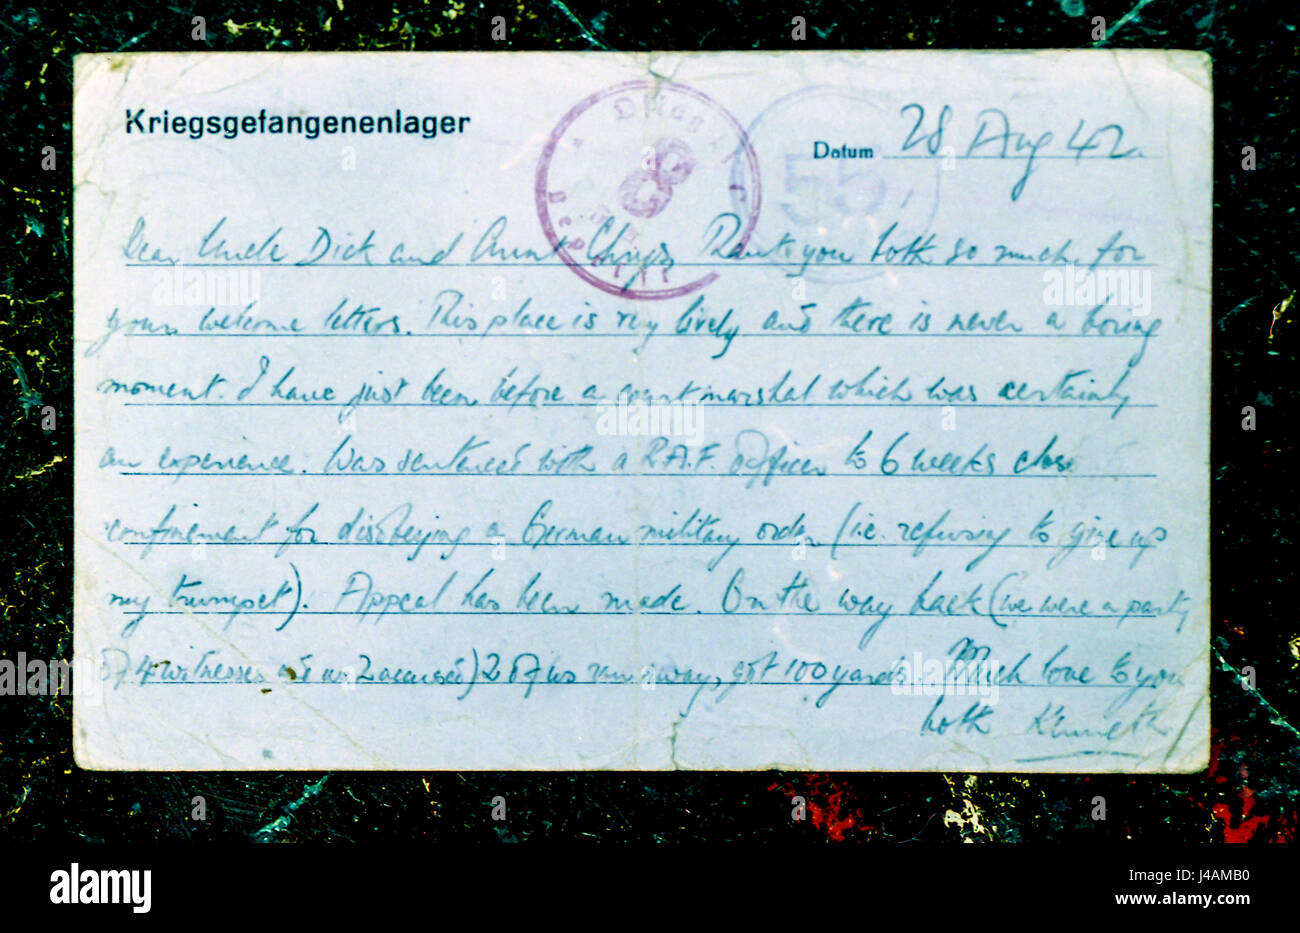 Kriegsgefangenenlager
Datum 28 Aug 42.
Dear Uncle Dick and Aunt Thank you both so much for
your welcome letters. This place is very lively and there is never a boring
moment. I have just been before a court marshal which was certainly
an experience. Was sentenced with a R.A.F. Officer to 6 weeks close
confinement for disobeying a German military order (i.e. refusing to give up
my trumpet). Appeal has been made. On the way back (we were a party
of 4 witnesses and us 2 accused) 2 of us ran away, got 100 yards. Much love to you
both Kenneth
55
alamy
a
Image ID: J4AMB0
www.alamy.com